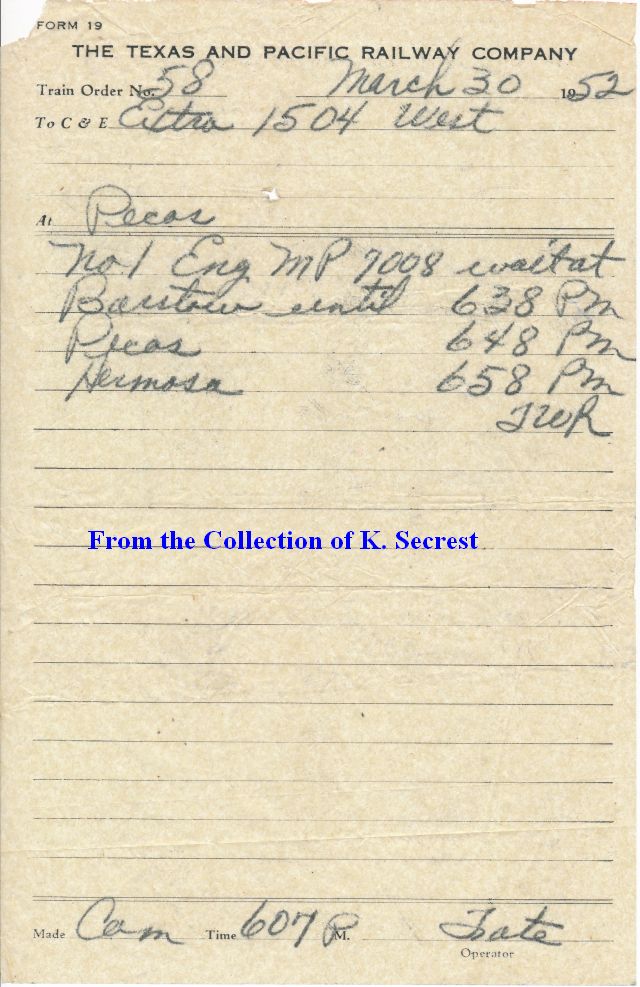 FORM 19
THE TEXAS AND PACIFIC RAILWAY COMPANY
Train Order No. 58 March 30 1952
To C & E Extra 1504 West
At Pecos
No 1 Eng MP 7008 wait at
Barstow until 638 PM
Pecos 648 PM
Hermosa 658 PM
JWR
From the Collection of K. Secrest
Made Com Time 607 P M. Tate
Operator